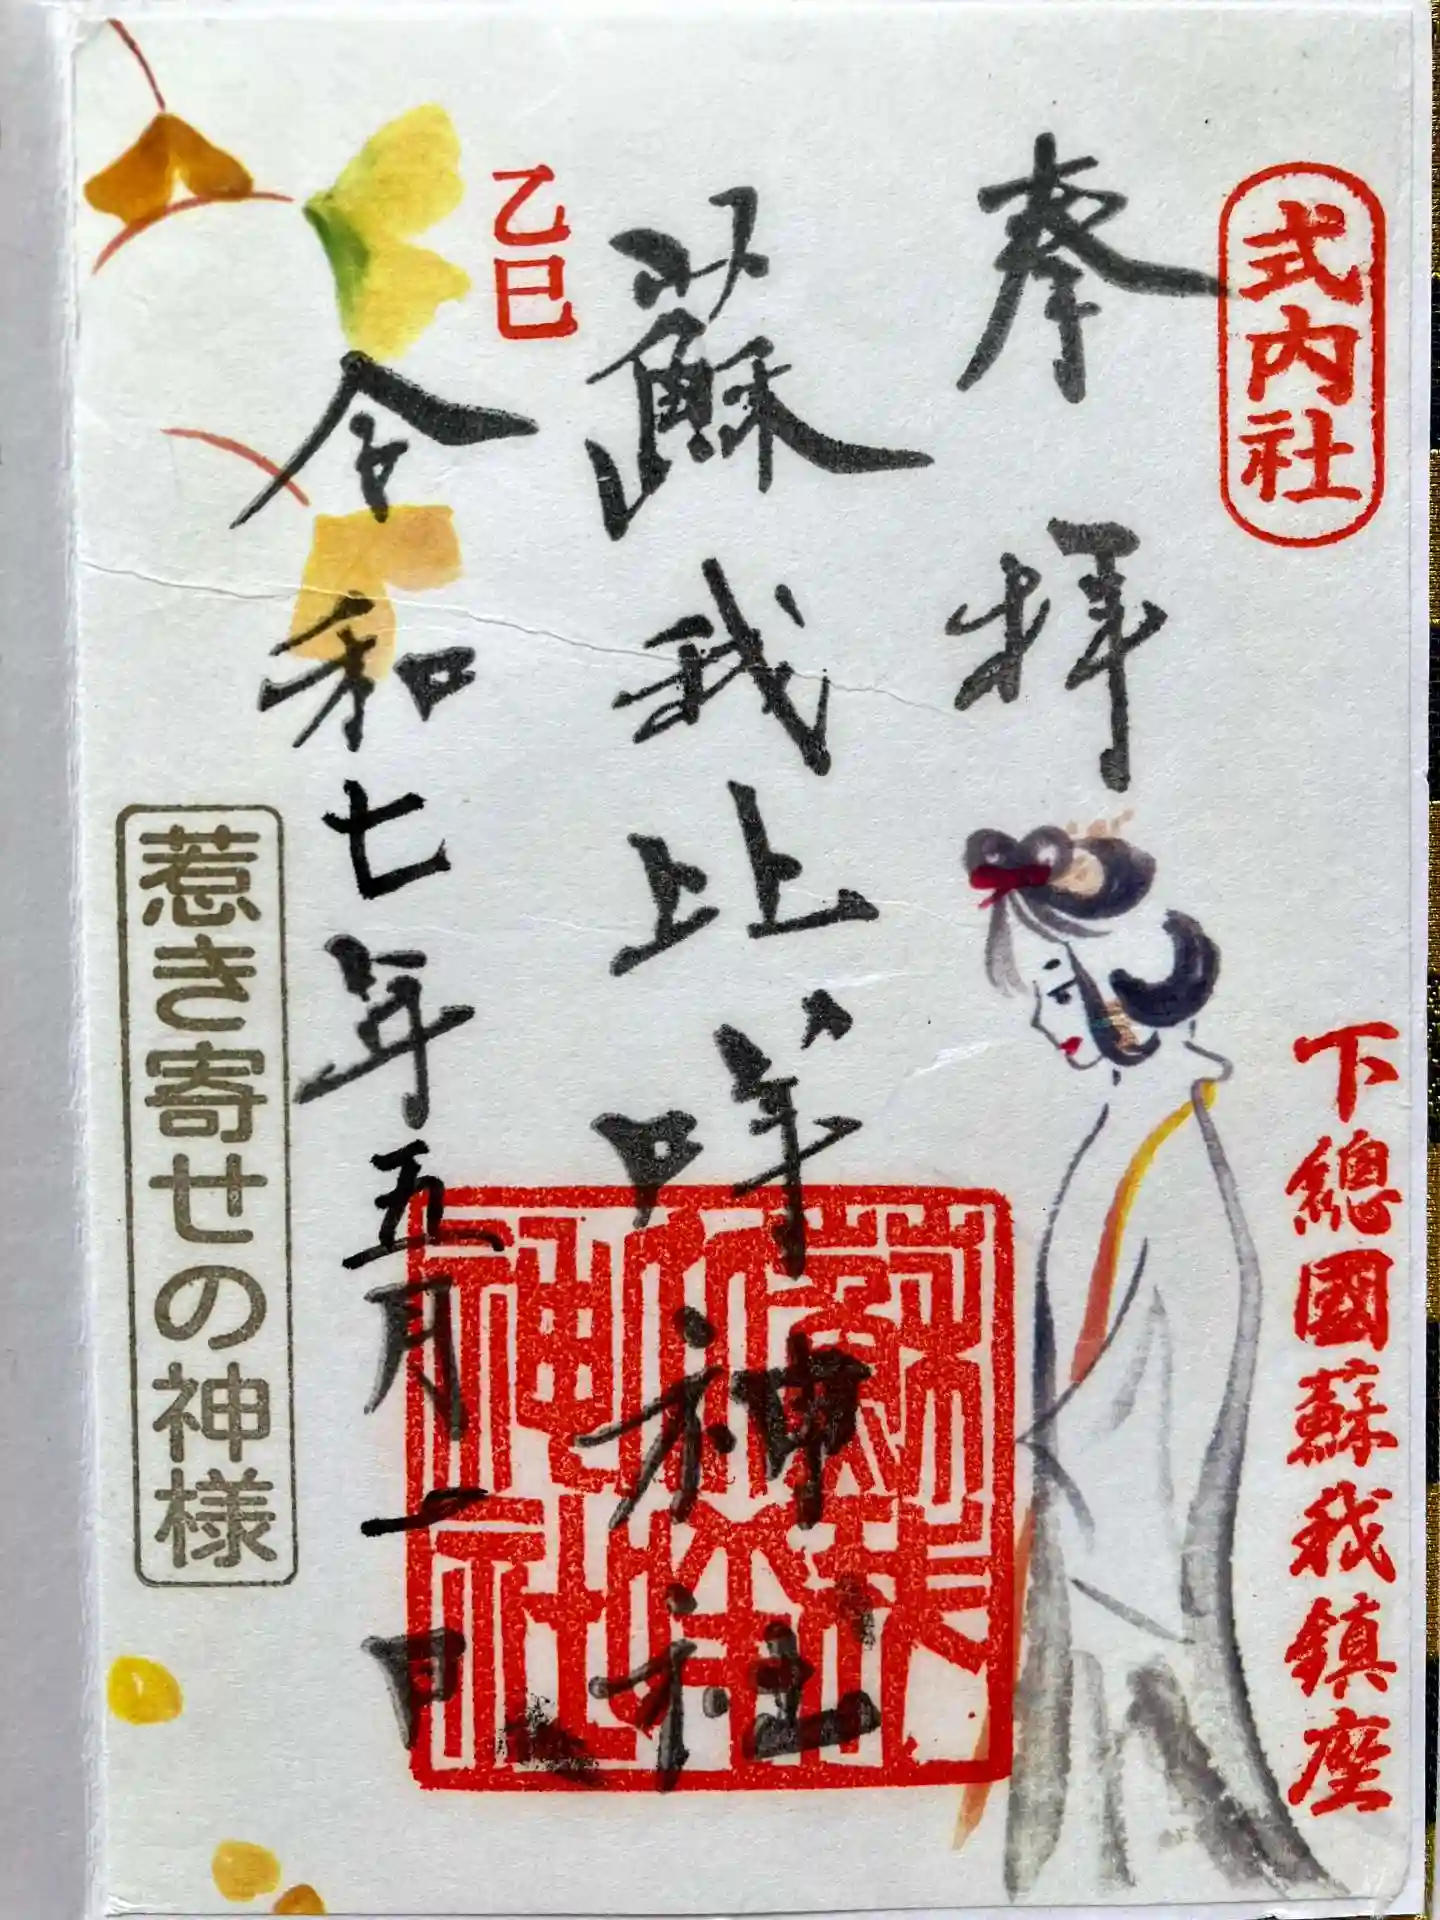 式内社
下總國蘇我鎮座
奉拝
蘇我比咩神社
乙巳
令和七年五月一日
惹き寄せの神様